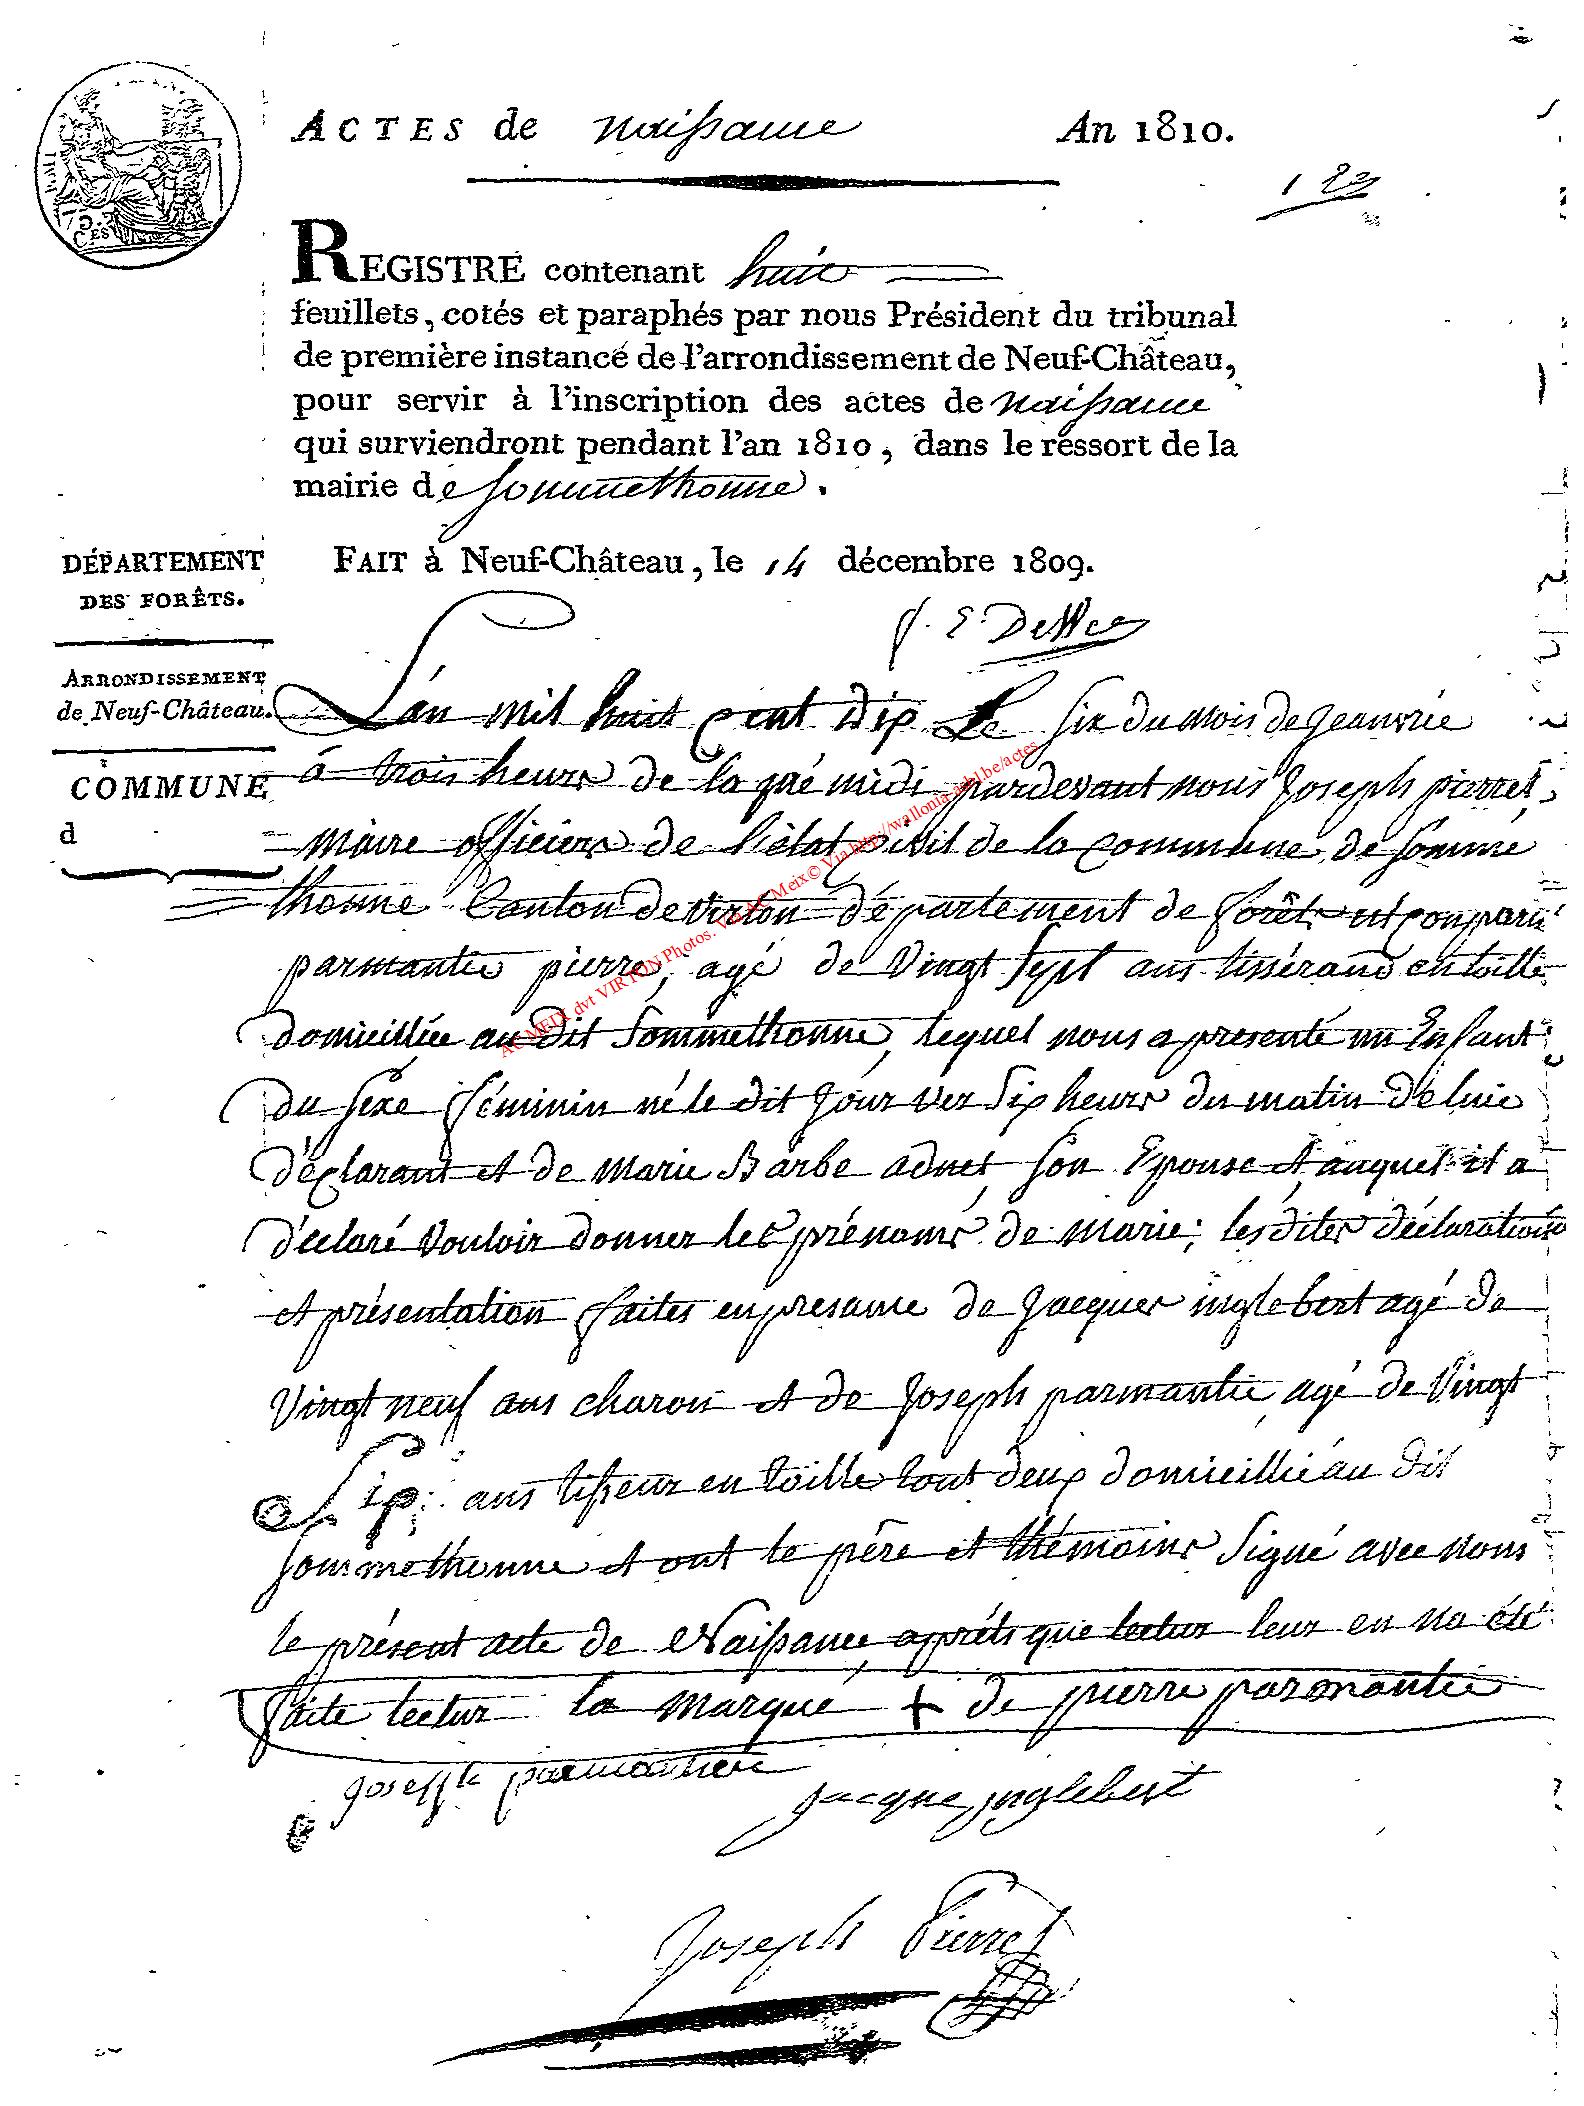 ACTES de naissance An 1810.
123
REGISTRE contenant huit
feuillets, cotés et paraphés par nous Président du tribunal
de première instance de l'arrondissement de Neuf-Château,
pour servir à l'inscription des actes de naissance
qui surviendront pendant l'an 1810, dans le ressort de la
mairie de Sommethonne.
DÉPARTEMENT
DES FORÊTS.
FAIT à Neuf-Château, le 14 décembre 1809.
ARRONDISSEMENT
de Neuf-Château.
COMMUNE
d
L'an mil huit cent dix Le six du mois de Jeanvrie
à trois heurs de la pré midi pardevant nous Joseph pierret
Maire officiers de l'état civil de la commune de Somme
thonne Canton de virton département de forêts est comparu
parmantie pierre, agé de Vingt sept ans tissérand en toille
domicilliée au dit Sommethonne, lequel nous a presenté un Enfant
du sexe féminin né le dit Jour ver six heurs du matin de luie
déclarant et de Marie Barbe adnet son Epouse et auquel il a
déclaré Vouloir donner les prénoms de Marie; les dites déclarations
et présentation faites en presance de Jacques inglebert agé de
Vingt neuf ans charon et de Joseph parmantie, agé de Vingt
Six ans tisseur en toille tout deux domicillié au dit
Sommethonne et ont le père et thémoins Signé avec nous
le présent acte de Naissance, aprêts que lectur leur en na été
faite lectur la marque + de pierre parmantie
Joseph parmantier
Jacque inglebert
Joseph Pierret
ACMEIX dvt VIRTON Photos. Via ACMeix© Via http://wallonia-asbl.be/actes